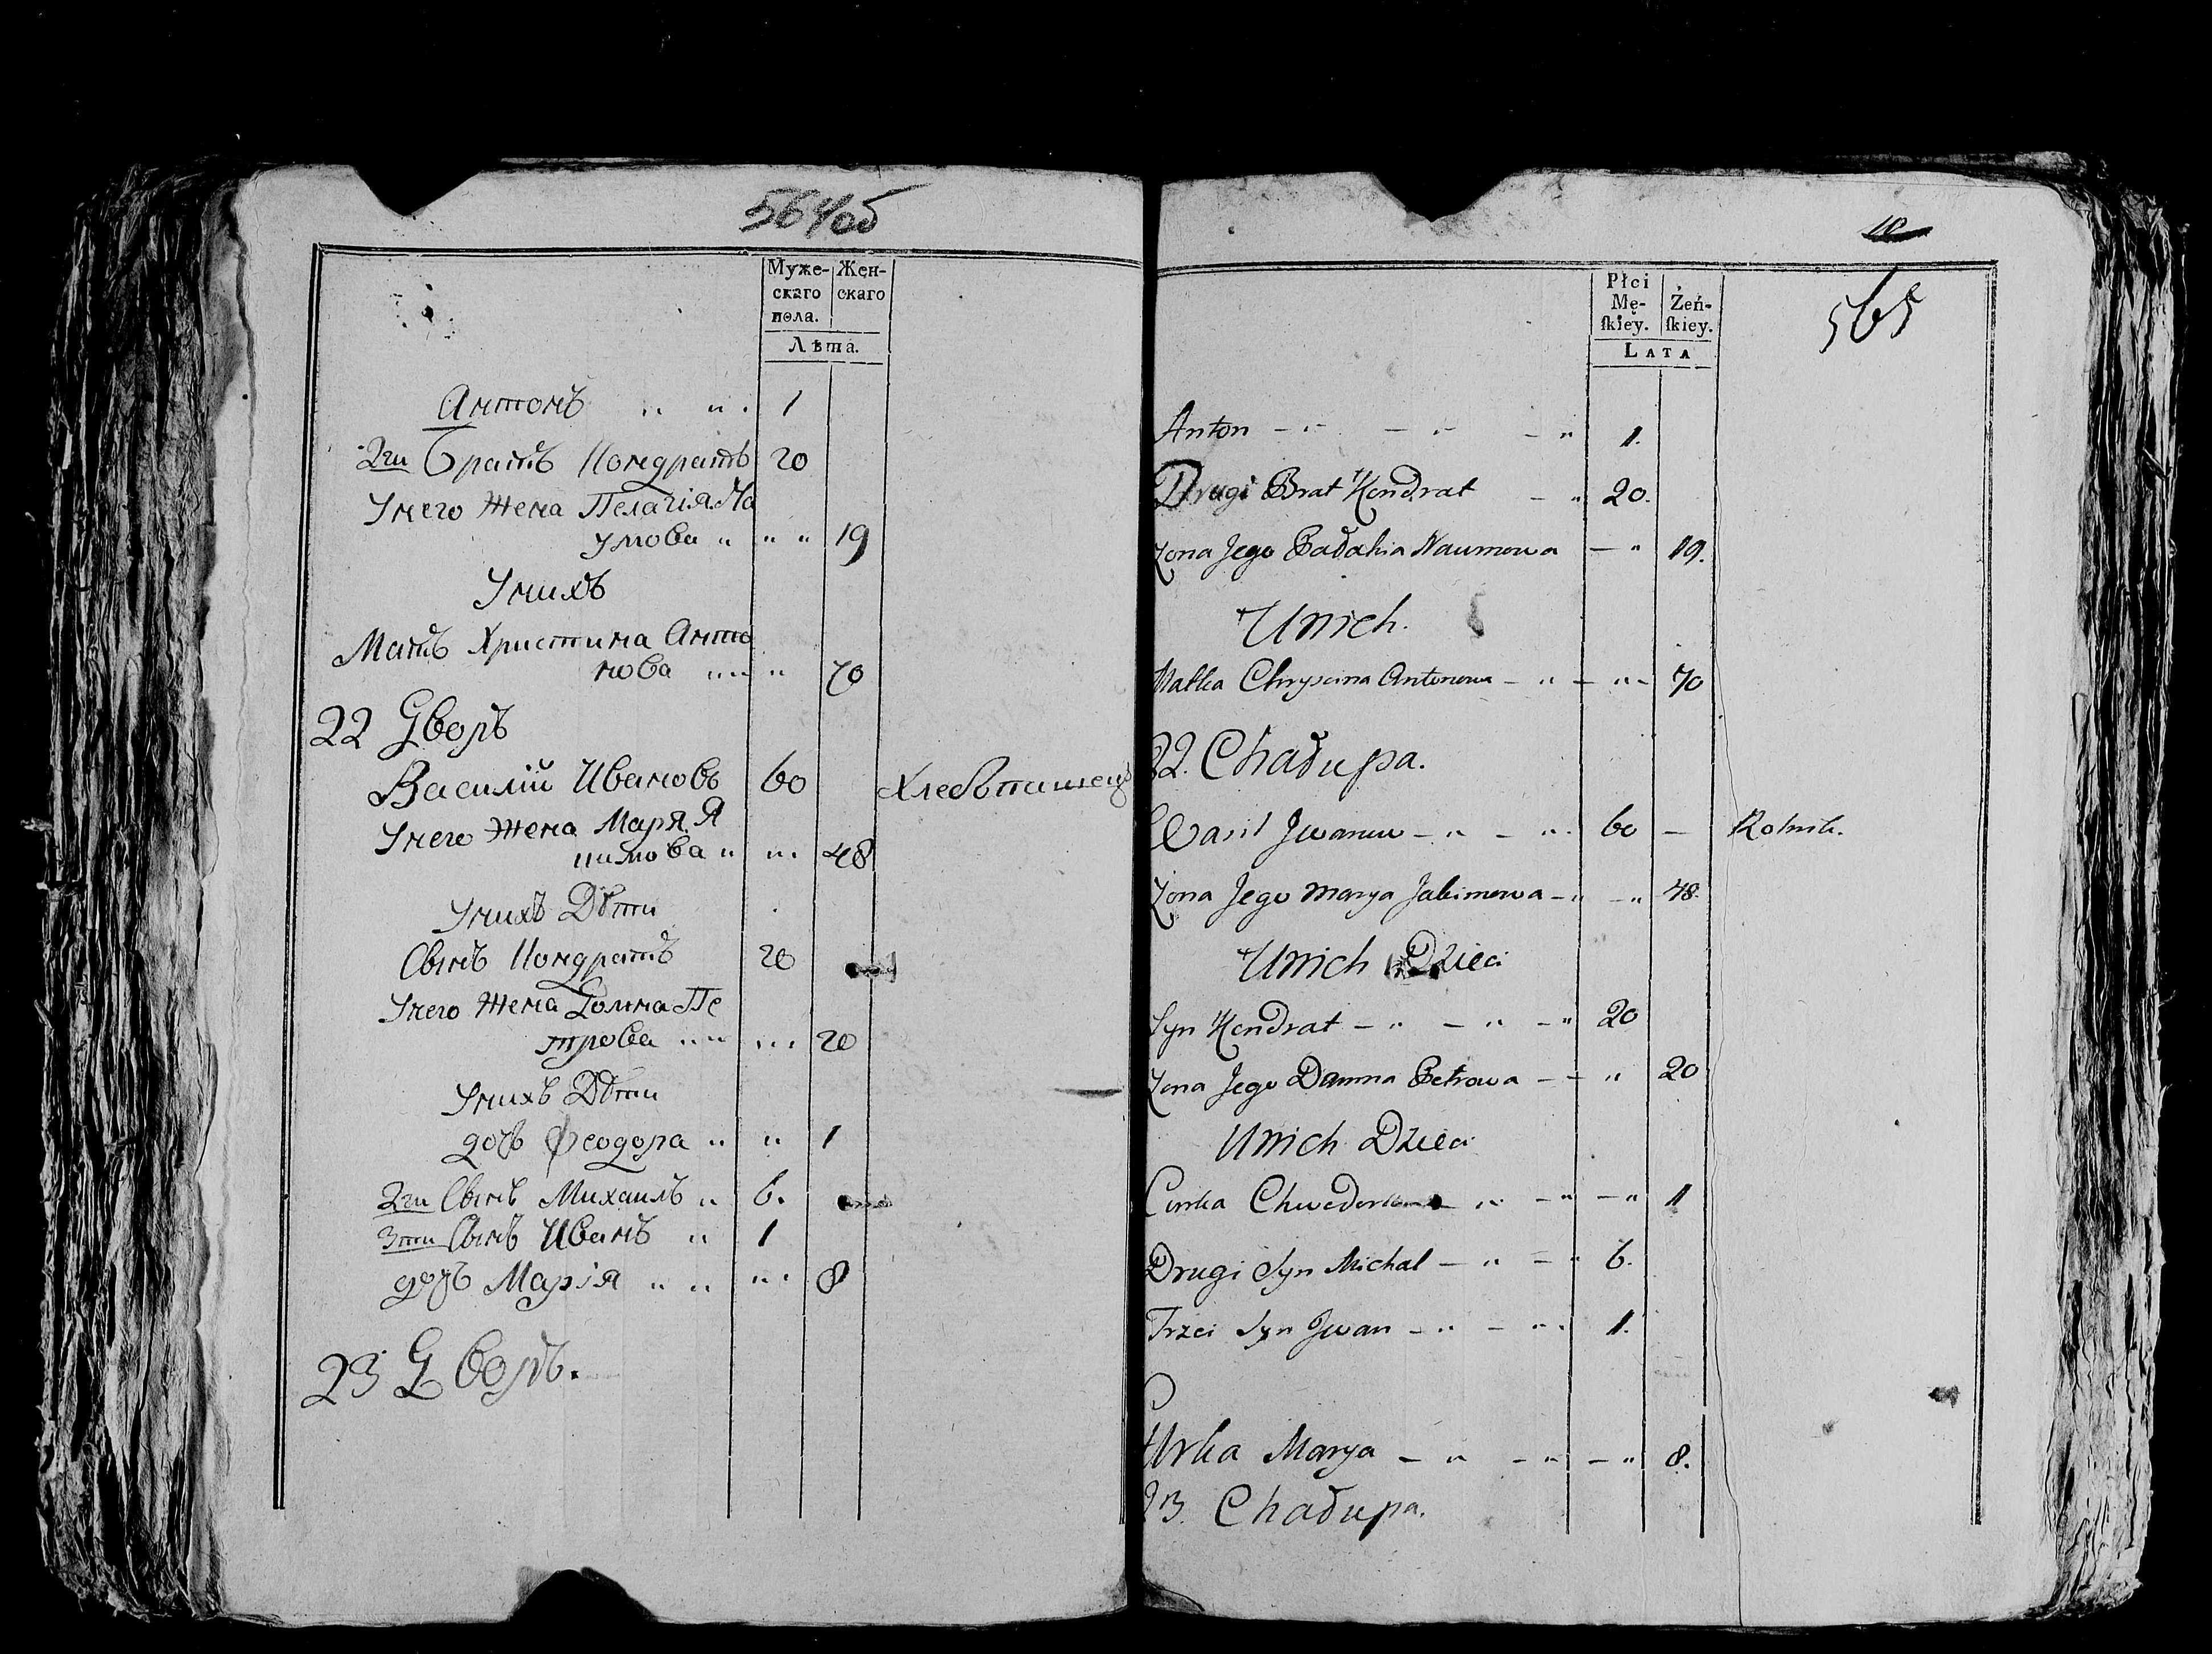 564об
Муже-
скаго
пола.
Жен-
скаго
Лѣта.
Антонъ „ „ . 1
2ги Братъ Кондратъ 20
Унего Жена Пелагія На
умова „ „ „ 19
Унихъ
Мать Христина Анто
нова „ „ „ 70
22 Дворъ
Василій Ивановъ 60 Хлебопашецъ
Унего Жена Маря Я
кимова „ „ . 48
Унихъ Дѣти
Сынъ Кондратъ 20
Унего Жена Домна Пе
трова „ „ „ . 20
Унихъ Дѣти
дочь Феодора „ „ 1
2ги Сынъ Михаилъ „ 6.
3ти Сынъ Иванъ „ 1
дочь Марія „ „ „ . 8
23 Дворъ.
10
565
Płci
Mę-
ſkiey.
Żeń-
ſkiey.
LATA
Anton – „ – „ – „ 1.
Drugi Brat Kondrat – „ 20.
Zona Jego Naumowa – „ 19.
Unich.
Matka Chryscina Antonowa – „ – „ – 70
22. Chałupa.
Wasil Jwanow – „ – „ . 60 – Rolnik.
Zona Jego Marya Jakimowa – „ – „ 48.
Unich Dzieci
Syn Kondrat – „ – „ – „ 20
Zona Jego Damna Petrowa – – „ 20
Unich Dzieci
Curka – „ – „ – „ 1
Drugi Syn Michal – „ – „ 6.
Trzci Syn Jwan – „ – „ . 1.
Curka Marya – „ – „ – „ 8.
23. Chałupa.